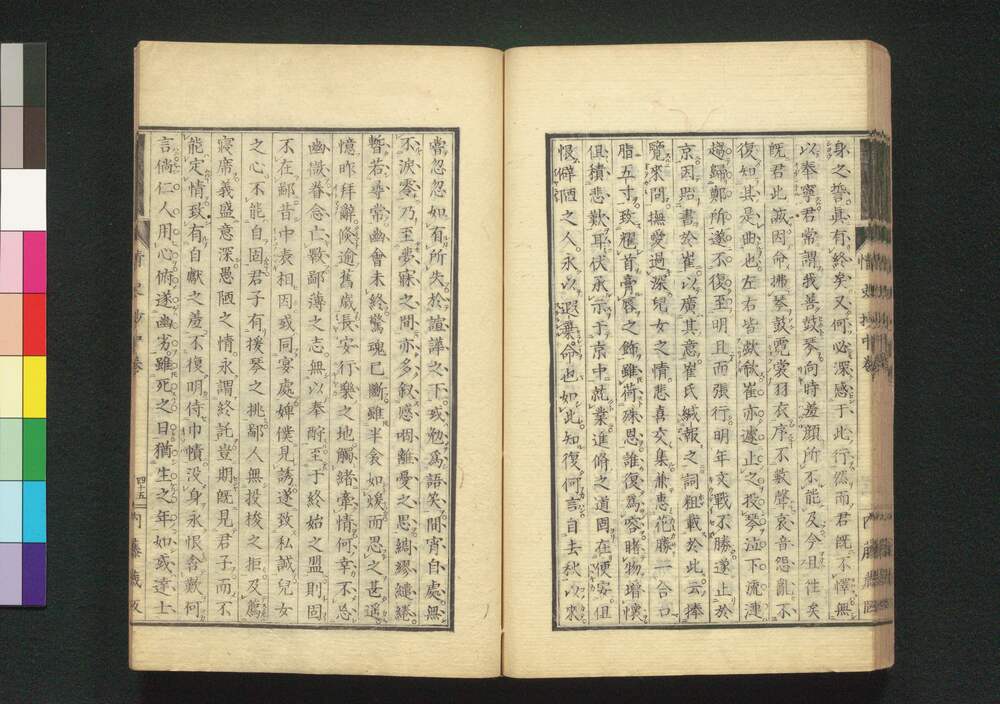 身之誓其有終矣又何必深感于此行然而君既不懌無
以奉寧君常謂我善鼓琴向時羞顔所不能及今且往矣
既君此誠因命拂琴鼓霓裳羽衣序不數聲哀音怨亂不
復知其是曲也左右皆歔欷崔亦遽止之投琴泣下流漣
趨歸鄭所遂不復至明旦而張行明年文戰不勝遂止於
京因貽書於崔以廣其意崔氏緘報之詞粗載於此云捧
覽來問撫愛過深兒女之情悲喜交集兼惠花勝一合口
脂五寸致耀首膏唇之飾雖荷殊恩誰復爲容睹物增懷
但積悲歎耳伏承示于京中就業進脩之道固在便安但
恨僻陋之人永以遐棄命也如此知復何言自去秋以來
嘗忽忽如有所失於諠譁之下或勉爲語笑間宵自處無
不淚零乃至夢寐之間亦多叙感咽離憂之思綢繆繾綣
暫若尋常幽會未終驚魂已斷雖半衾如煖而思之甚遥
憶昨拜辭倐逾舊歳長安行樂之地觸緒牽情何幸不忘
幽微眷念亡斁鄙薄之志無以奉酧至于終始之盟則固
不在鄙昔中表相因或同宴處婢僕見誘遂致私誠兒女
之心不能自固君子有援琴之挑鄙人無投梭之拒及薦
寝席義盛意深愚陋之情永謂終託豈期既見君子而不
能定情致有自獻之羞不復明侍巾幘没身永恨含歎何
言倘仁人用心俯遂幽劣雖死之日猶生之年如或達士
情史抄中卷
四十五
内藤蔵